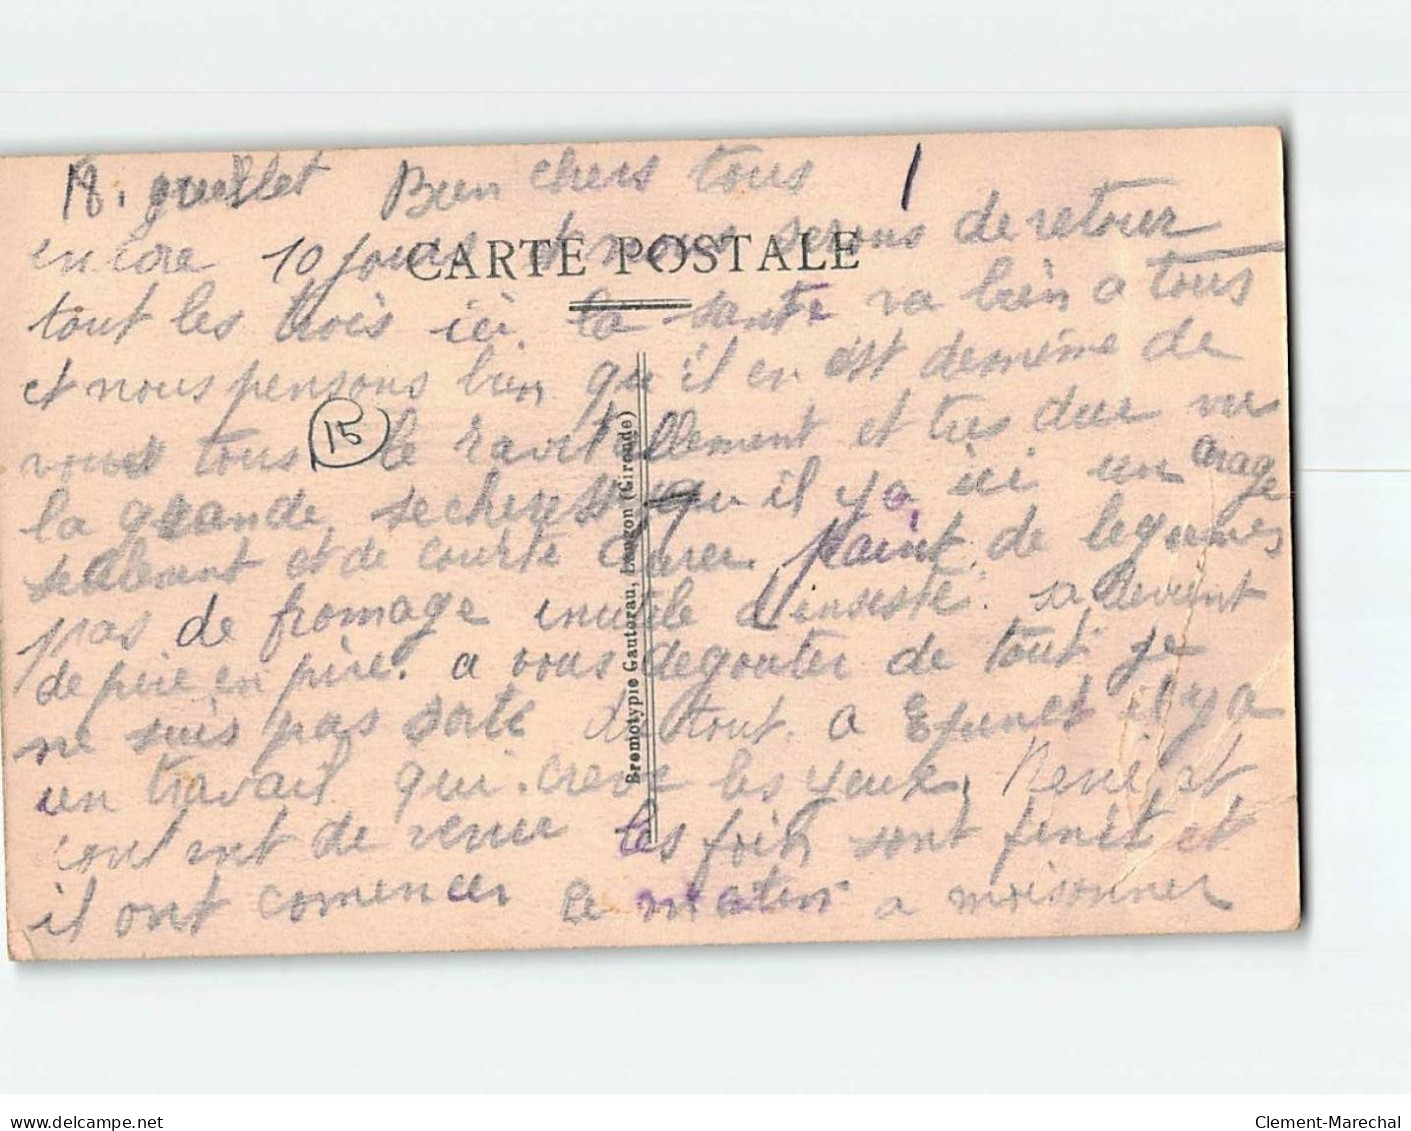 18. Juillet Bien chers tous
1
encore 10 jours et nous serons de retour
CARTE POSTALE
tout les trois ici la sante va bien a tous
et nous pensons bien qu'il en est de meme de
vous tous le ravitaillement et tres dur vus
15
la grande secheresse qu il y a ici un orage
seulement et de courte durer. point de legumes
pas de fromage inutile d'insisté. sa devient
de pire en pire. a vous degouter de tout je
ne suis pas sorti du tout. a il y a
un travail qui creve les yeux, René et
sont de revue les foin sont finit et
il ont comencer ce matin a moisonner
Bromotypie Gautorau, Langon (Gironde)
delcampe.net
Clement-Marechal